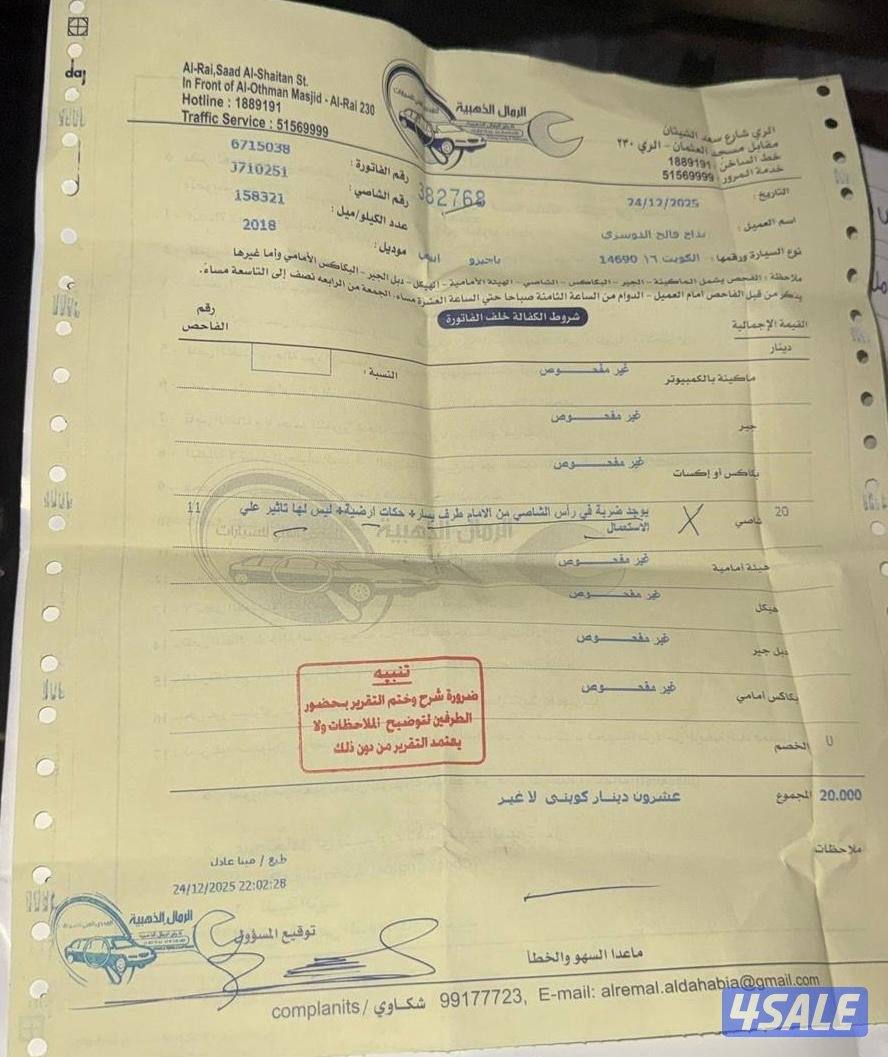 daj
Al-Rai,Saad Al-Shaitan St.
In Front of Al-Othman Masjid - Al-Rai 230
Hotline : 1889191
Traffic Service : 51569999
الرمال الذهبية
الري شارع سعد الشيتان
مقابل مسجد العثمان - الري ٢٣٠
خط الساخن: 1889191
خدمة المرور: 51569999
رقم الفاتورة : 6715038
382768
التاريخ : 24/12/2025
رقم الشاصي : J710251
اسم العميل : بداح فالح الدوسري
عدد الكيلو/ميل : 158321
نوع السيارة ورقمها : الكويت ١٦ 14690 باجيرو ابيض
موديل : 2018
ملاحظة : الفحص يشمل الماكينة - الجير - البكاكس - الشاصي - الهيئة الأمامية - الهيكل - دبل الجير - البكاكس الأمامي وأما غيرها
يذكر من قبل الفاحص أمام العميل - الدوام من الساعة الثامنة صباحا حتي الساعة العشرة مساء، الجمعة من الرابعه نصف إلى التاسعة مساءً.
شروط الكفالة خلف الفاتورة
القيمة الإجمالية
دينار
رقم الفاحص
ماكينة بالكمبيوتر غير مفحوص النسبة :
جير غير مفحوص
بكاكس أو إكسات غير مفحوص
20 شاصي يوجد ضربة في رأس الشاصي من الامام طرف يسار+ حكات ارضية+ ليس لها تاثير علي 11
الاستعمال
هيئة أمامية غير مفحوص
هيكل غير مفحوص
دبل جير غير مفحوص
بكاكس أمامي غير مفحوص
تنبيه
ضرورة شرح وختم التقرير بحضور
الطرفين لتوضيح الملاحظات ولا
يعتمد التقرير من دون ذلك
الخصم 0
20.000 المجموع عشرون دينار كويتى لا غير
ملاحظات
طبع / مينا عادل
24/12/2025 22:02:28
الرمال الذهبية
توقيع المسؤول
ماعدا السهو والخطأ
complanits / شكاوي 99177723, E-mail: alremal.aldahabia@gmail.com
4SALE